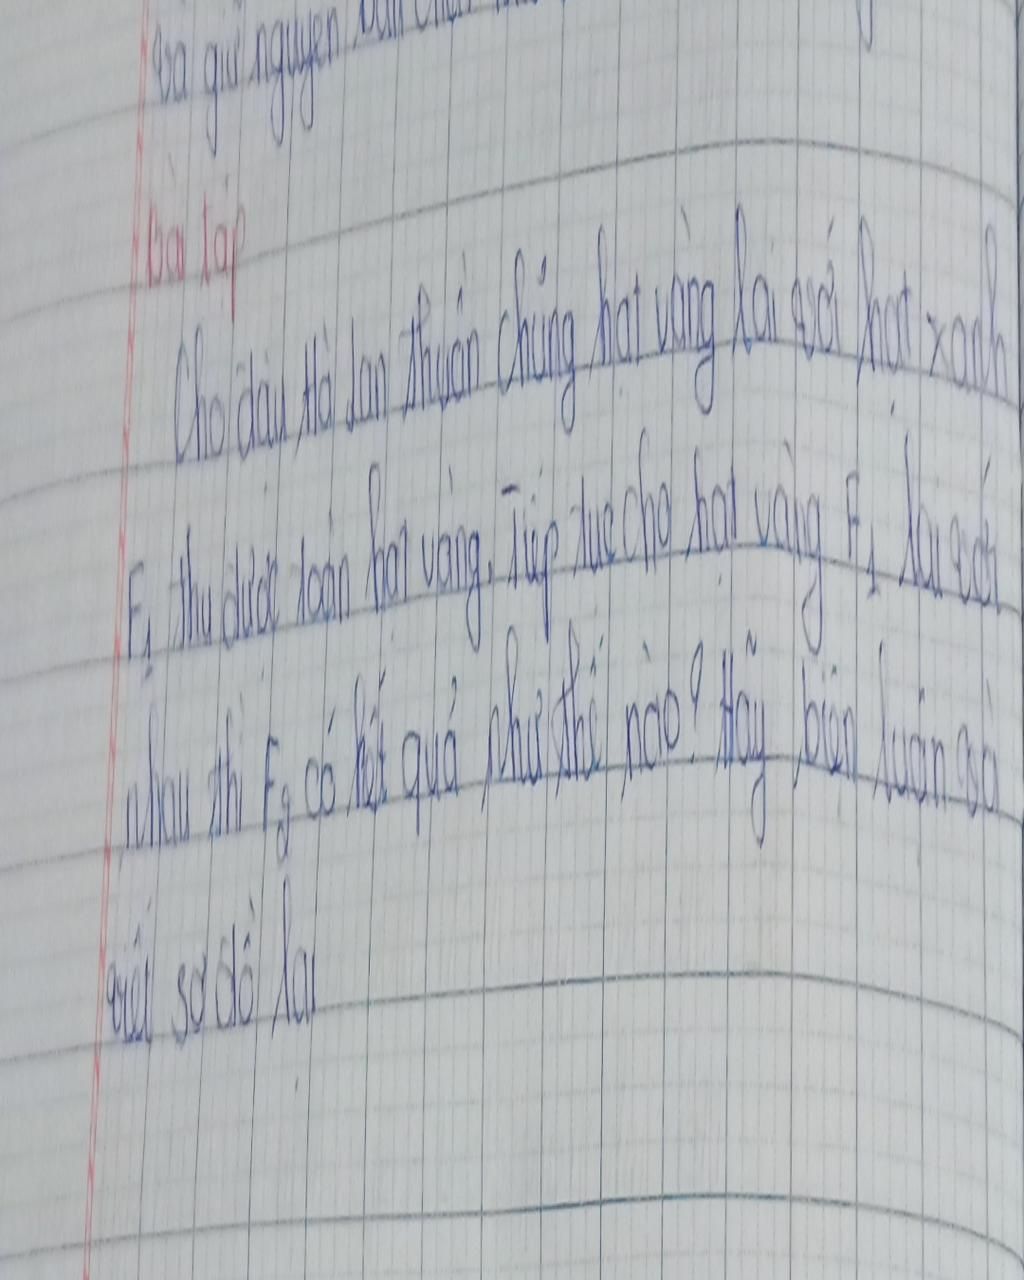 và giữ nguyên bản chất
Bài tập
Cho đậu Hà Lan thuần chủng hạt vàng lai với hạt xanh
F1 thu được toàn hạt vàng. Tiếp tục cho hạt vàng F1 lai với
nhau thì F2 có kết quả như thế nào? Hãy biện luận và
viết sơ đồ lai